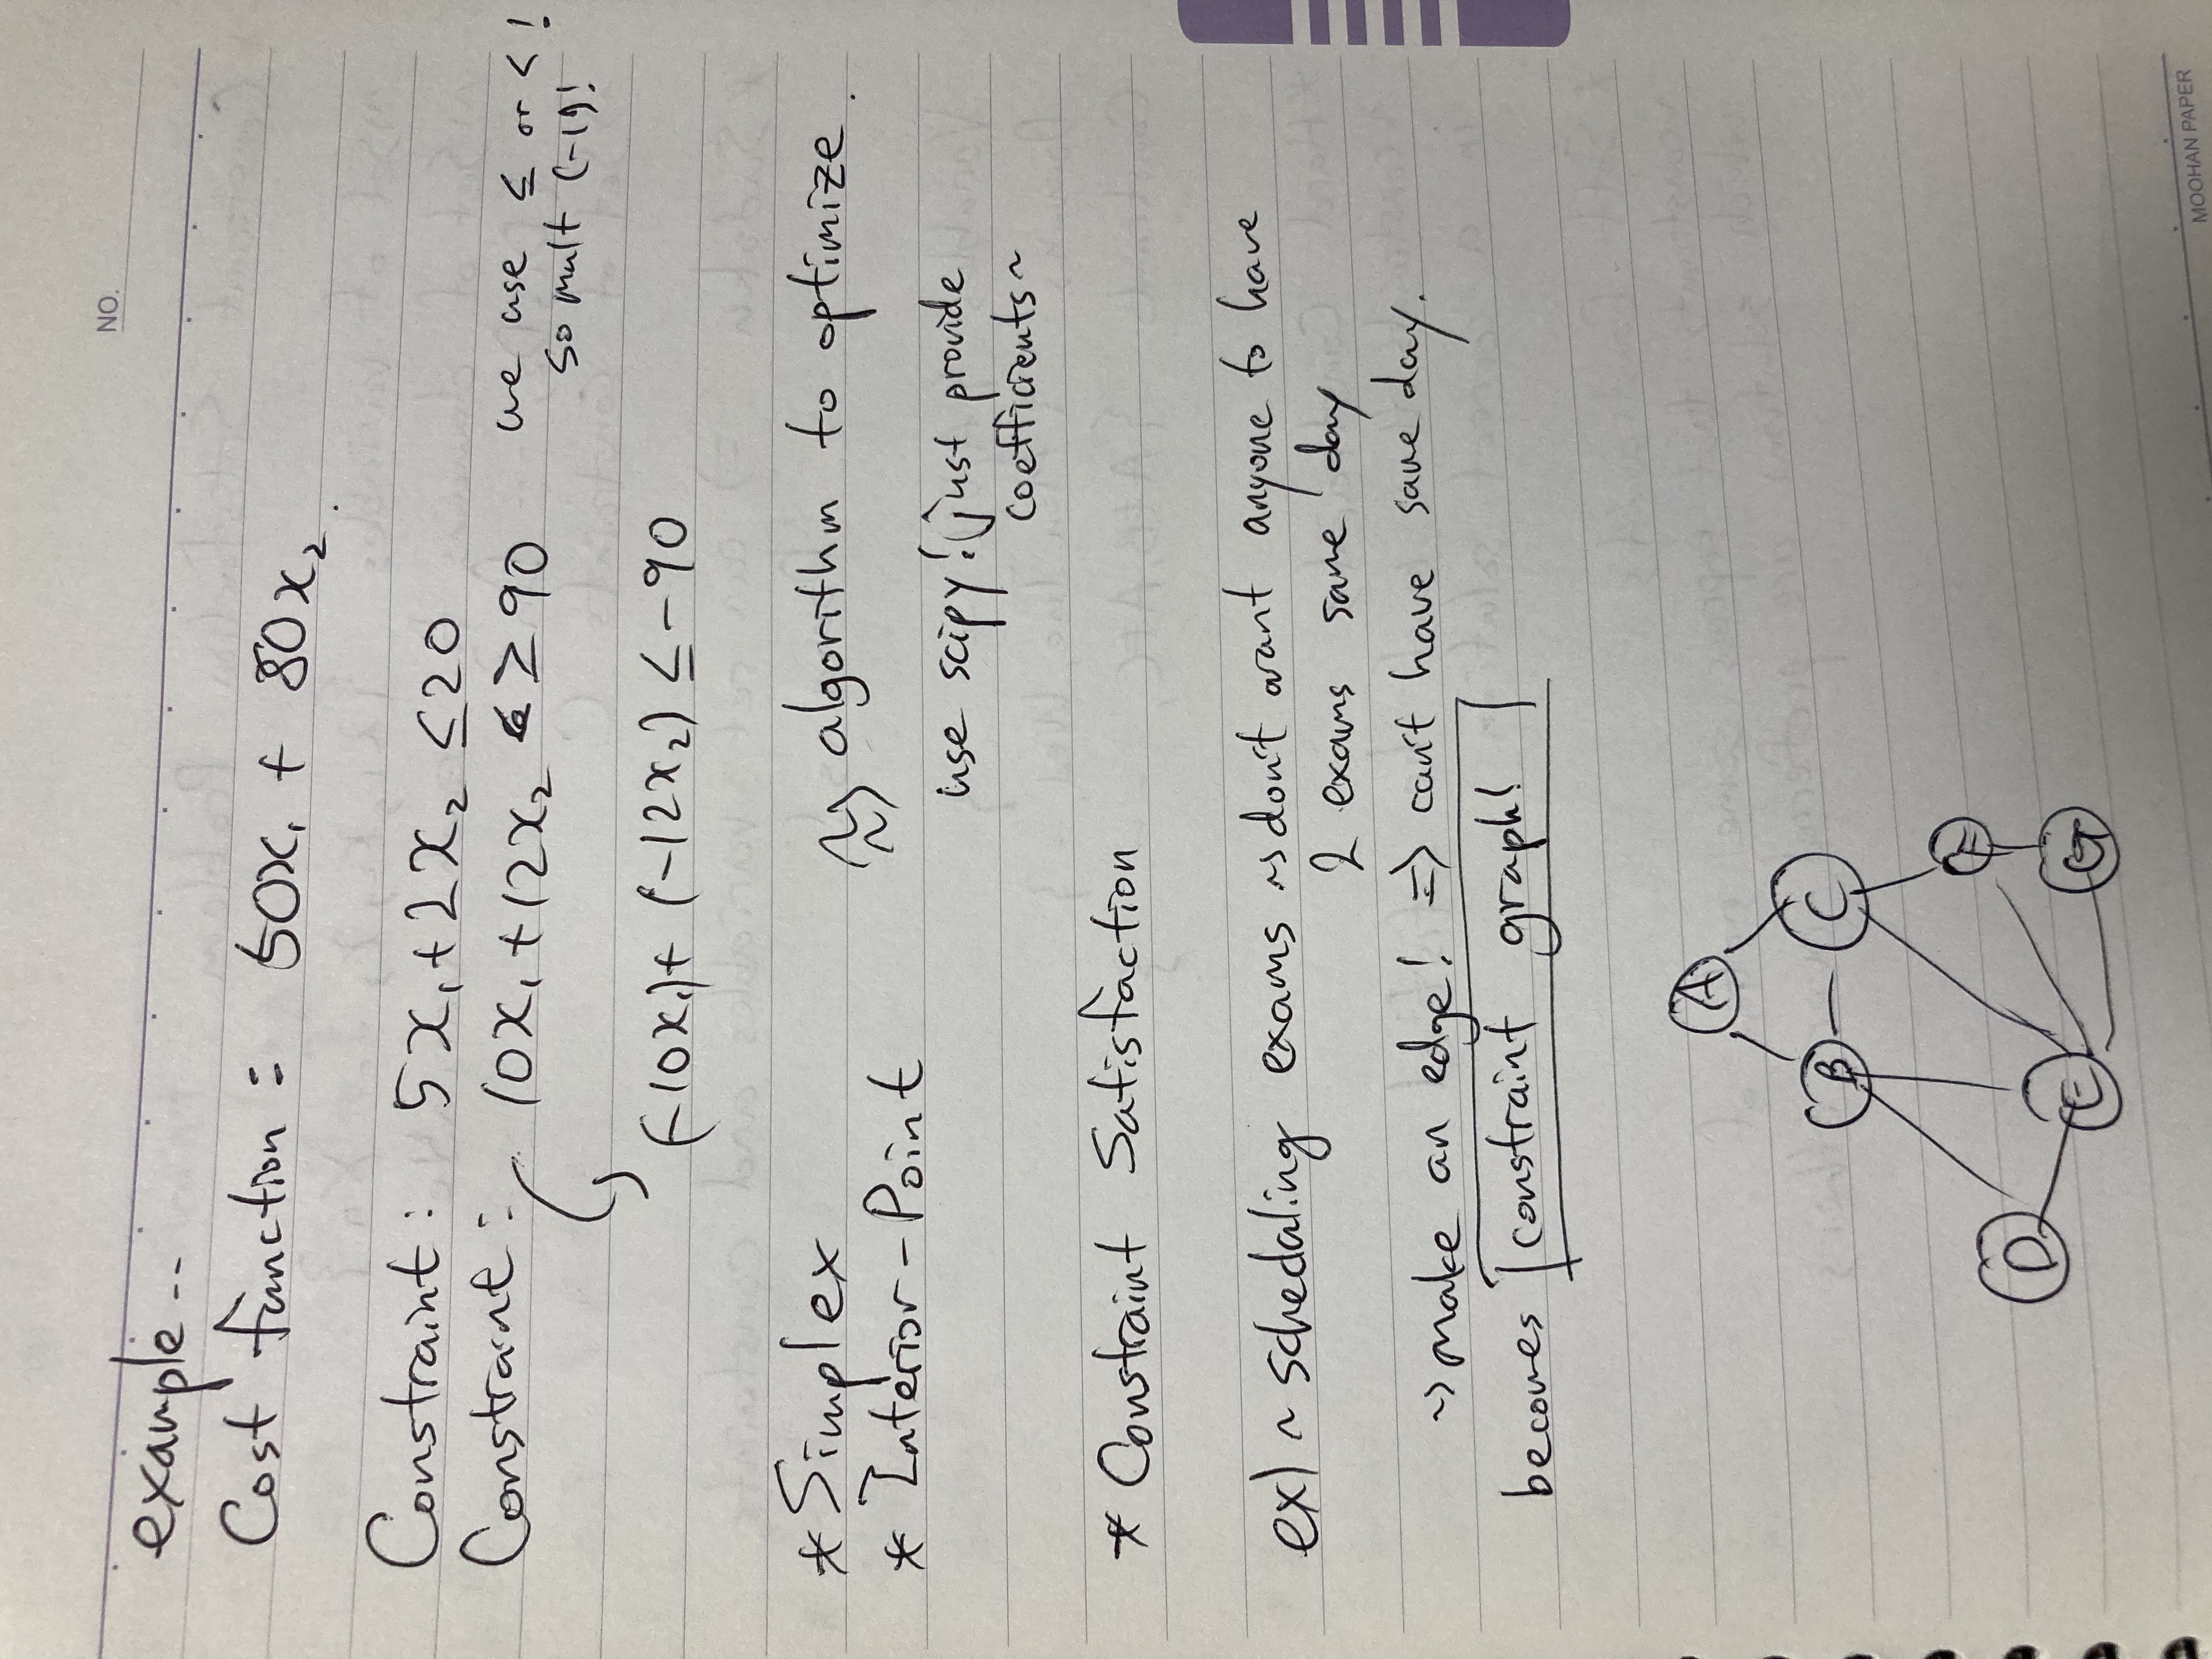 NO.
example --
Cost function : 50x₁ + 80x₂.
Constraint : 5x₁+2x₂ ≤20
Constraint : 10x₁+12x₂ ≥ 90 we use ≤ or < !
so mult (-1)!
(-10x₁)+ (-12x₂) ≤ -90
* Simplex ~> algorithm to optimize.
* Interior-Point
use scipy! just provide
coefficients~
* Constraint Satisfaction
ex) ~ scheduling exams ~> don't want anyone to have
2 exams same day
~> make an edge! => can't have same day.
becomes constraint graph!
A
B C
F
D E G
MOOHAN PAPER